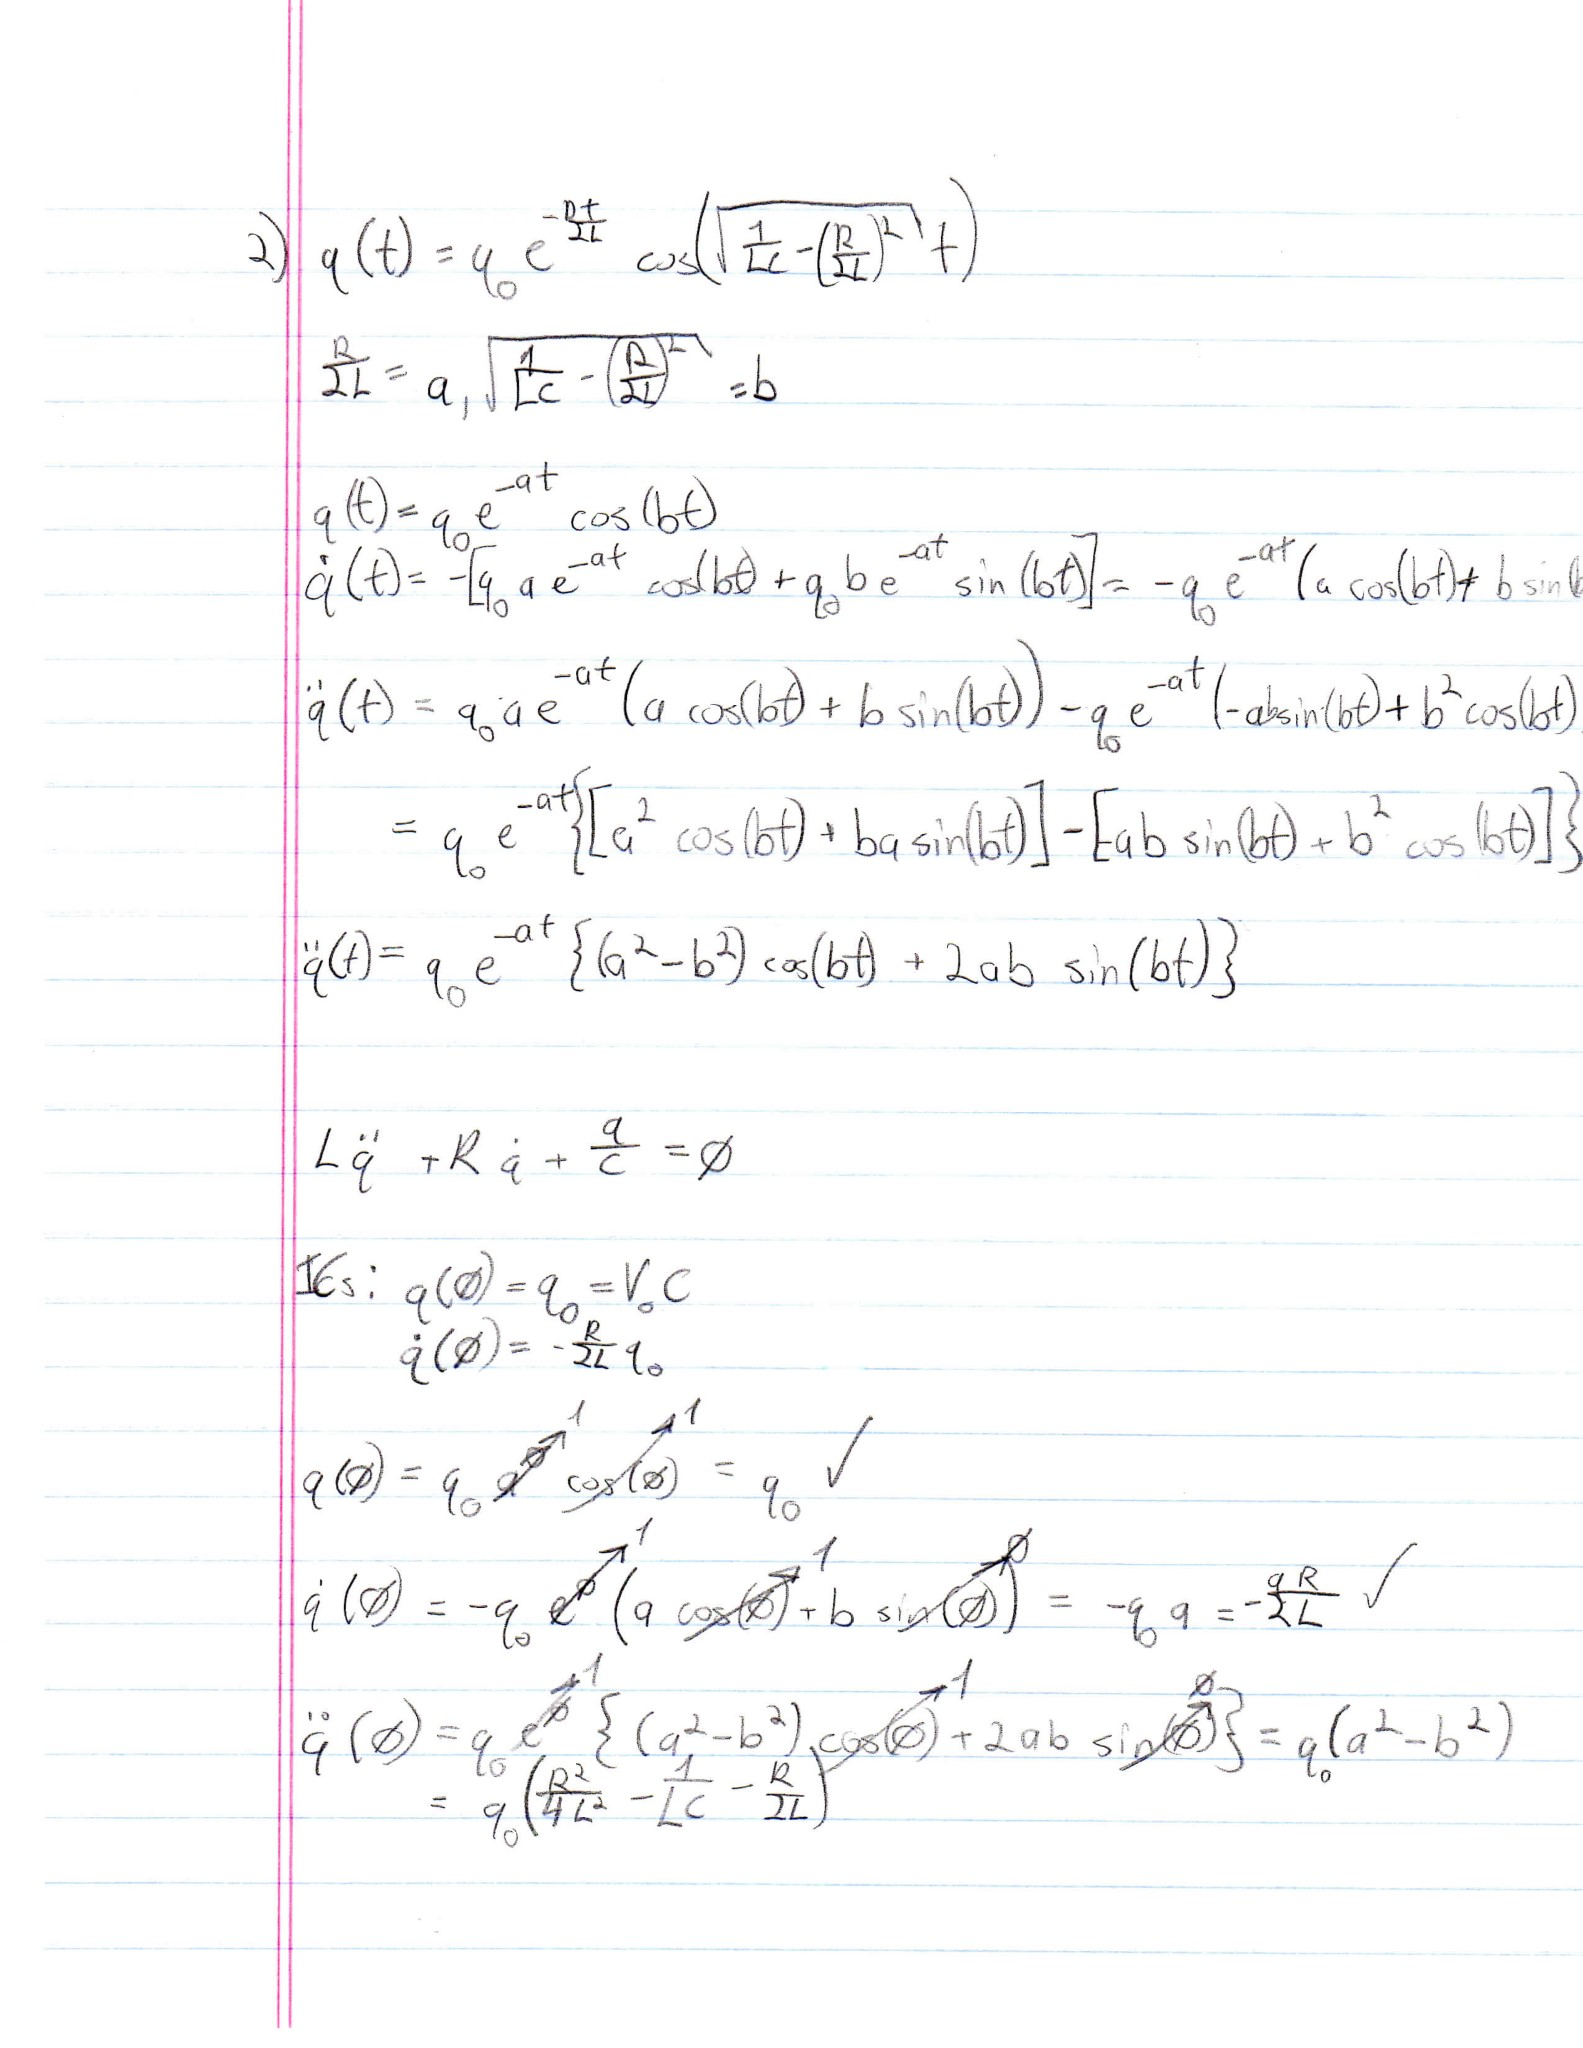 2) q(t) = q₀ e^(-Rt/2L) cos(√(1/LC - (R/2L)²) t)
R/2L = a, √(1/LC - (R/2L)²) = b
q(t) = q₀ e^(-at) cos(bt)
q̇(t) = -[q₀ a e^(-at) cos(bt) + q₀ b e^(-at) sin(bt)] = -q₀ e^(-at) (a cos(bt) + b sin(b
q̈(t) = q₀ a e^(-at) (a cos(bt) + b sin(bt)) - q₀ e^(-at) (-ab sin(bt) + b² cos(bt)
= q₀ e^(-at) {[a² cos(bt) + ba sin(bt)] - [ab sin(bt) + b² cos(bt)]}
q̈(t) = q₀ e^(-at) {(a² - b²) cos(bt) + 2ab sin(bt)}
Lq̈ + Rq̇ + q/C = ∅
ICs: q(∅) = q₀ = V₀C
q̇(∅) = -R/2L q₀
q(∅) = q₀ e^∅ → 1 cos(∅) → 1 = q₀ ✓
q̇(∅) = -q₀ e^∅ → 1 (a cos(∅) → 1 + b sin(∅) → ∅) = -q₀ a = -qR/2L ✓
q̈(∅) = q₀ e^∅ → 1 {(a² - b²) cos(∅) → 1 + 2ab sin(∅) → ∅} = q₀(a² - b²)
= q₀(R²/4L² - 1/LC - R/2L)